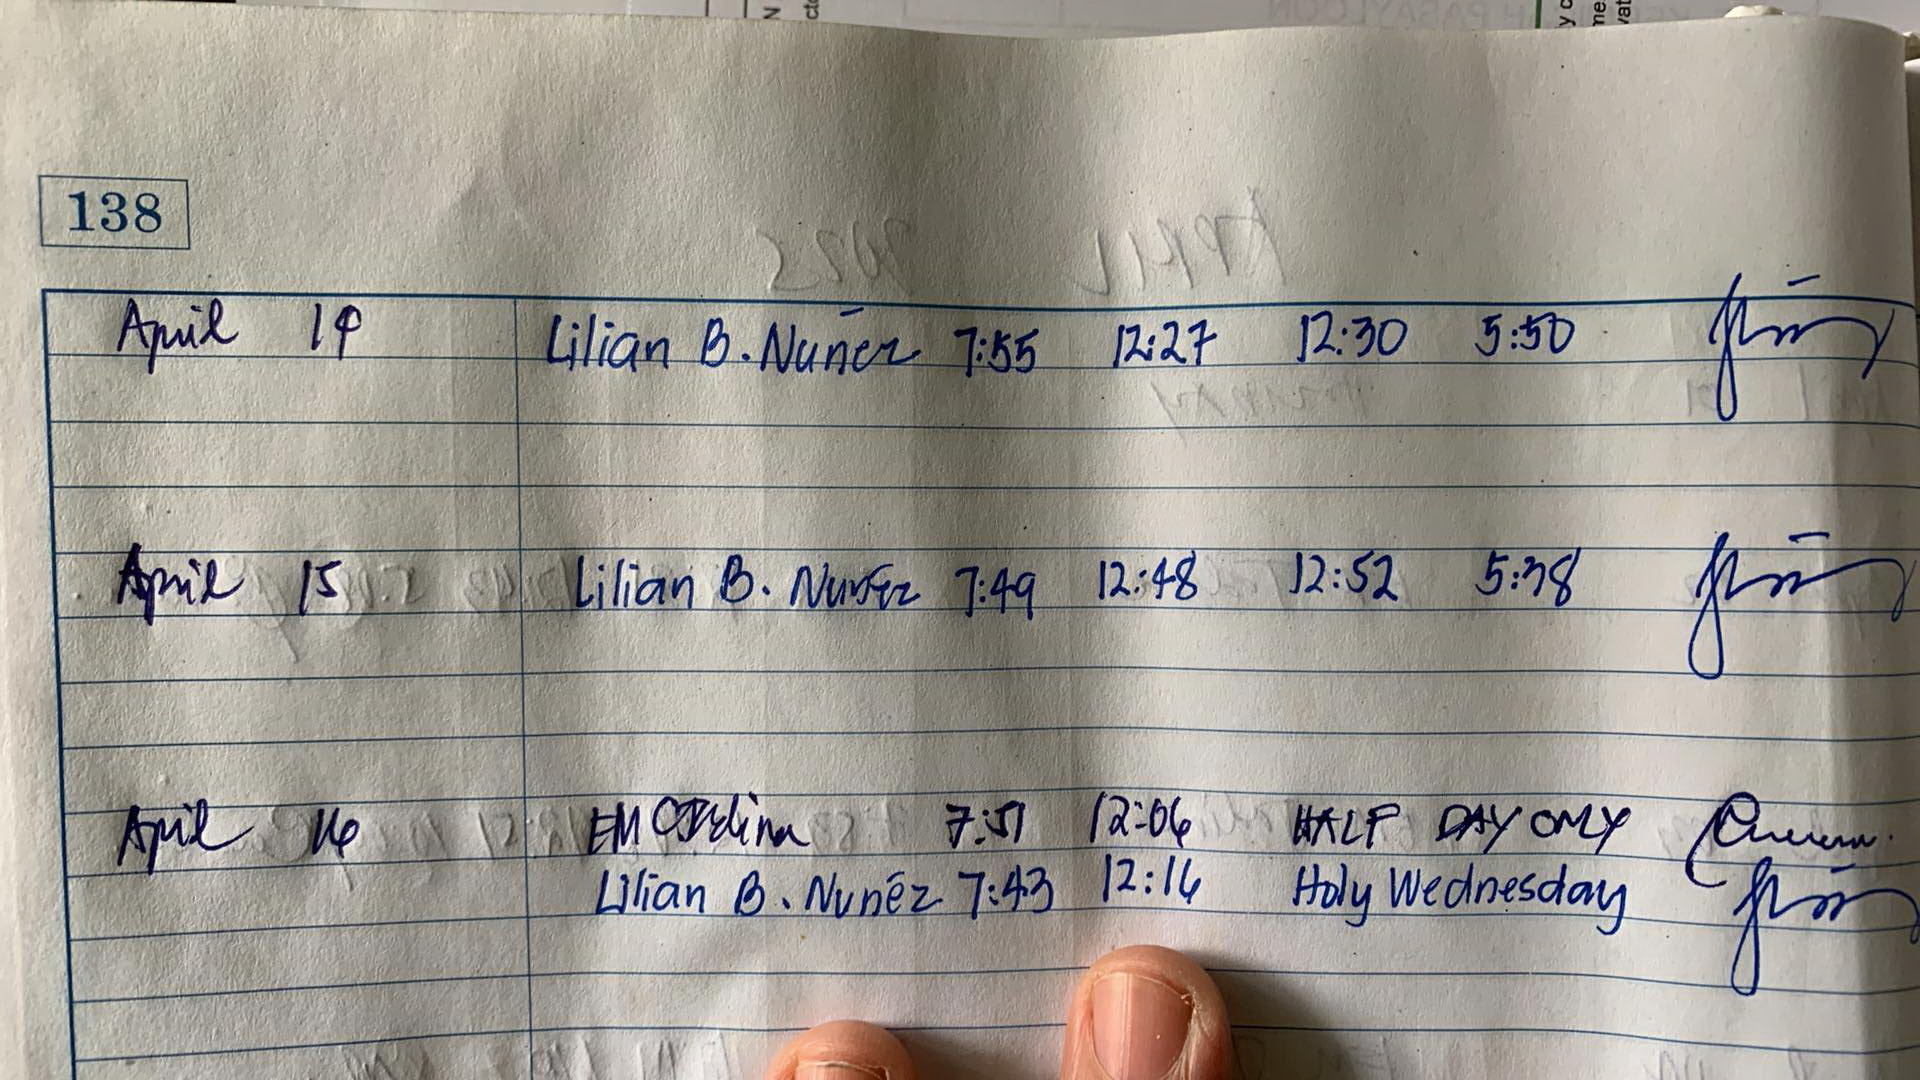 138
April 14 Lilian B. Nuñez 7:55 12:27 12:30 5:50
April 15 Lilian B. Nuñez 7:49 12:48 12:52 5:38
April 16 EM 7:51 12:06 HALF DAY ONLY
Lilian B. Nuñez 7:43 12:16 Holy Wednesday